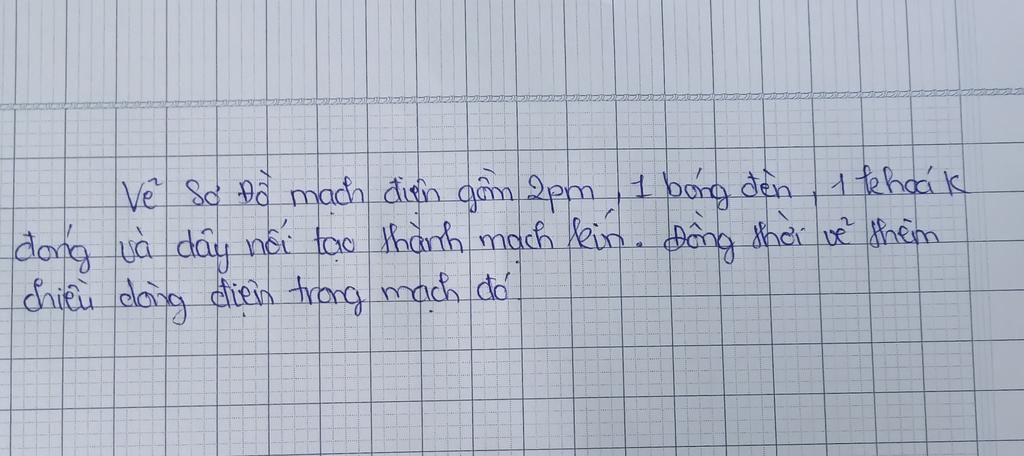 Vẽ Sơ Đồ mạch điện gồm 2pm, 1 bóng đèn, 1 khoá K
đóng và dây nối tạo thành mạch kín. Đồng thời vẽ thêm
chiều dòng điện trong mạch đó